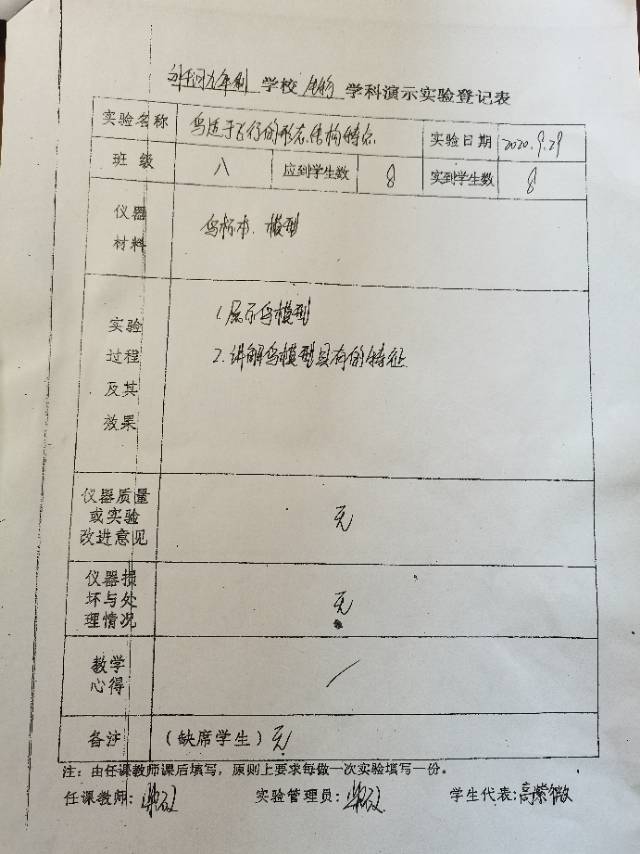 九年制 学校 生物 学科演示实验登记表
实验名称 鸟适于飞行的形态结构特点 实验日期 2020.9.29
班级 八 应到学生数 8 实到学生数 8
仪器
材料
鸟标本、模型
实验
过程
及其
效果
1.展示鸟模型
2.讲解鸟模型具有的特征
仪器质量
或实验
改进意见
无
仪器损
坏与处
理情况
无
教学
心得
/
备注 (缺席学生) 无
注：由任课教师课后填写，原则上要求每做一次实验填写一份。
任课教师: 实验管理员: 学生代表:高紫微